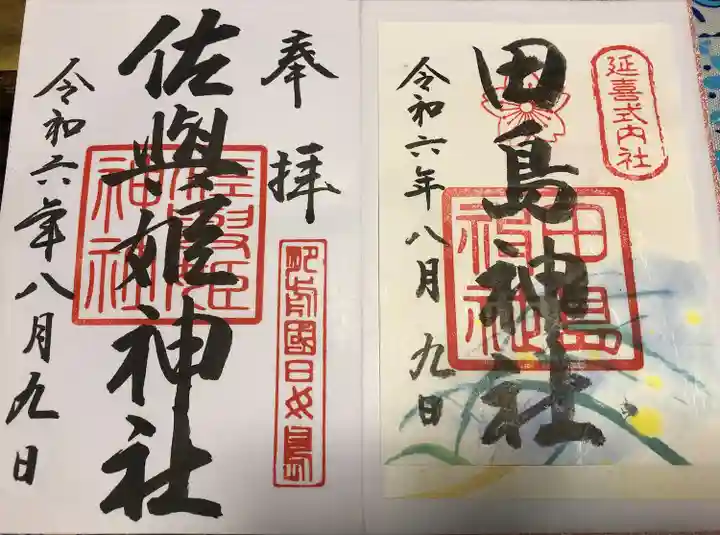 延喜式内社
田島神社
田島神社
令和六年八月九日
奉拝
肥前國日女島
佐與姫神社
佐與姫神社
令和六年八月九日